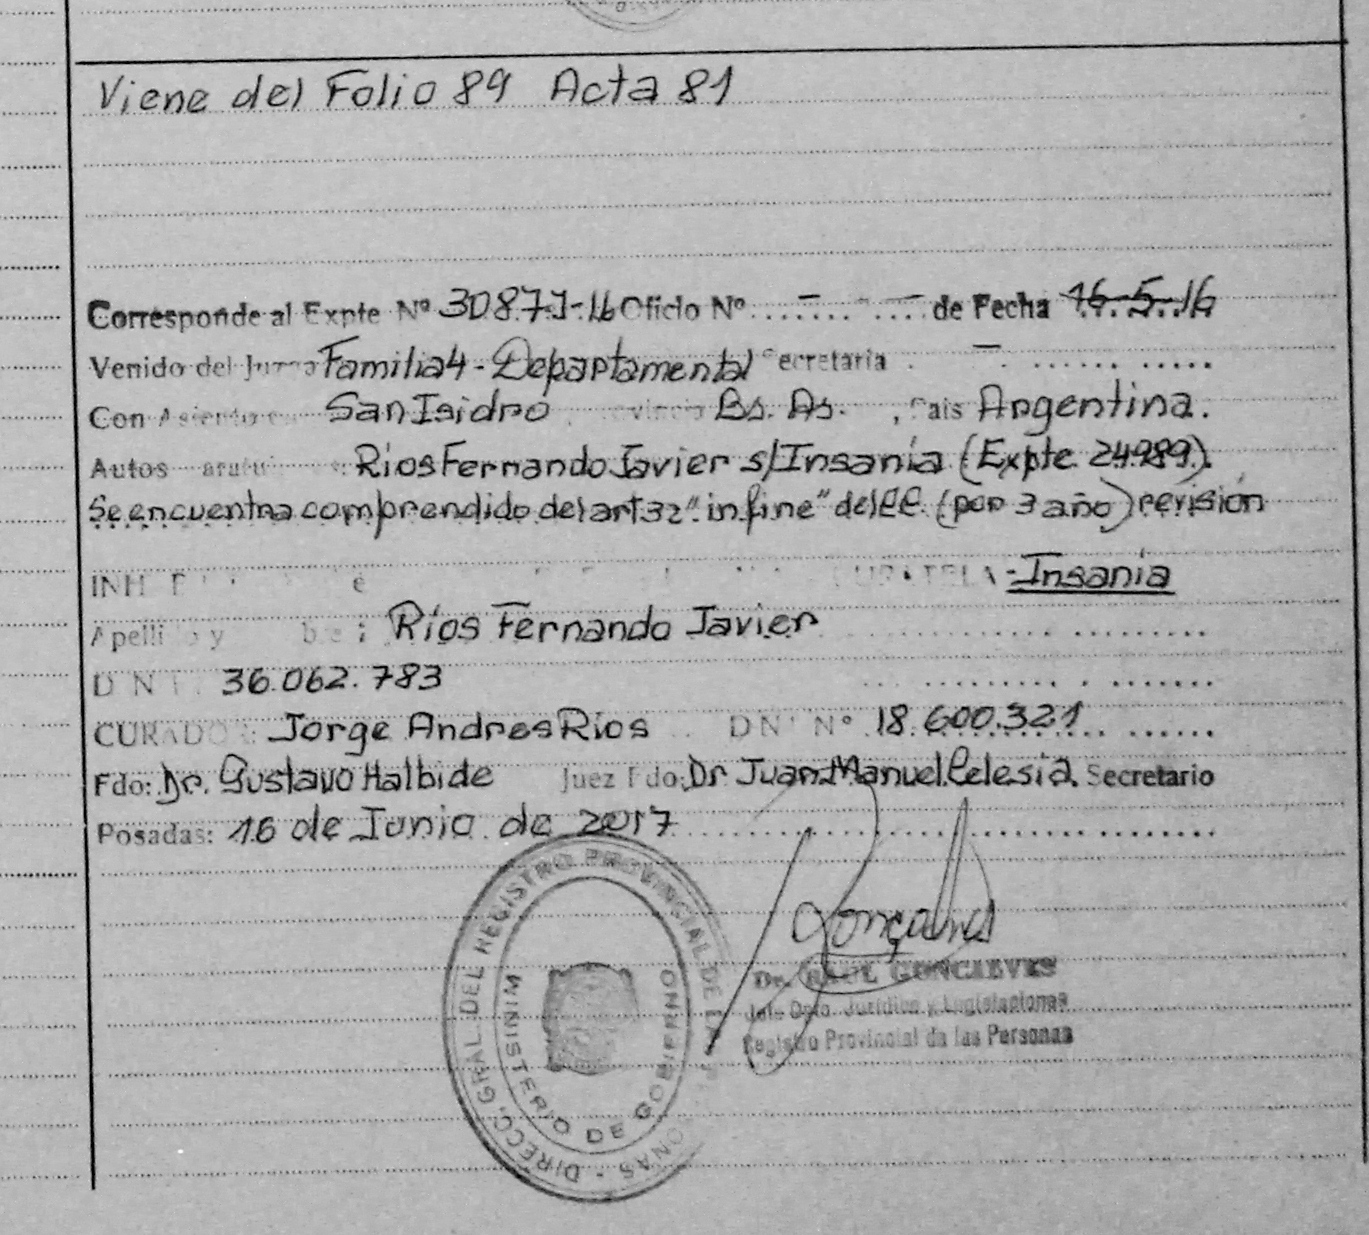 Viene del Folio 89 Acta 81
Corresponde al Expte Nº 3087-J-16 Oficio Nº - - - de Fecha 16-5-16
Venido del Familia 4 - Departamental Secretaria -
Con Asiento San Isidro Bs. As., Pais Argentina.
Autos Rios Fernando Javier s/Insania (Expte. 24989).
Se encuentra comprendido del art 32 "in fine" del CC. (por 3 año) revisión
CURATELA - Insania
Apellido y : Ríos Fernando Javier
DNI: 36.062.783
CURADOR: Jorge Andres Rios DNI Nº 18.600.321
Fdo: Dr. Gustavo Halbide Juez Fdo: Dr Juan Manuel Celesia. Secretario
Posadas: 16 de Junio de 2017
DIRECC. GRAL. DEL REGISTRO PROVINCIAL DE LAS PERSONAS -
MINISTERIO DE GOBIERNO
Gonçalves
Dr. RAUL GONCALVES
Jefe Dpto. Jurídico y Legislacional
Registro Provincial de las Personas